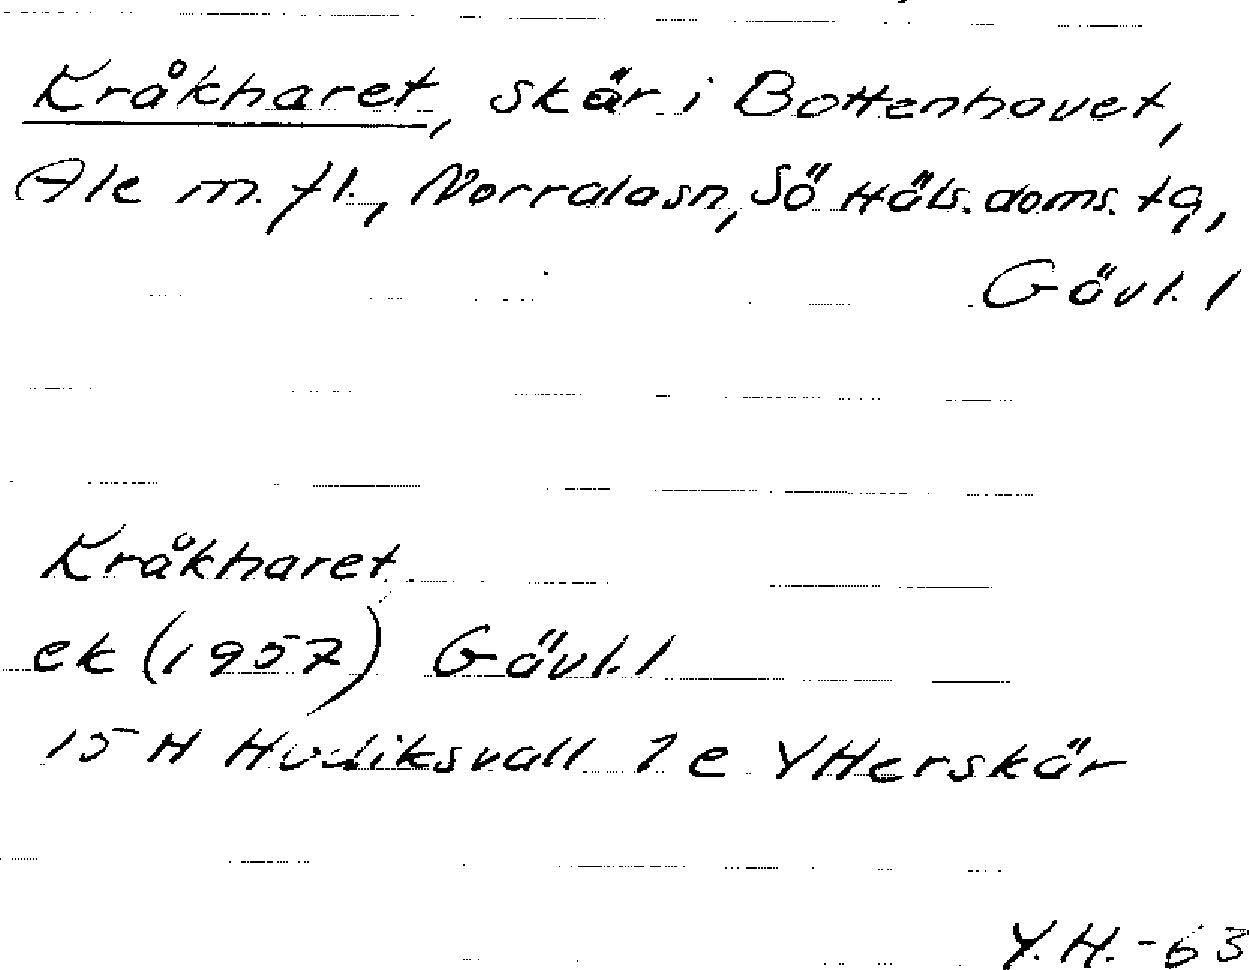 Kråkharet, skär i Bottenhavet,
Ale m.fl., Norralasn, Sö Häls.doms.tg,
Gävl. l
Kråkharet
ek (1957) Gävl. l
15 H Hudiksvall 7 e Ytterskär
Y.H.-63